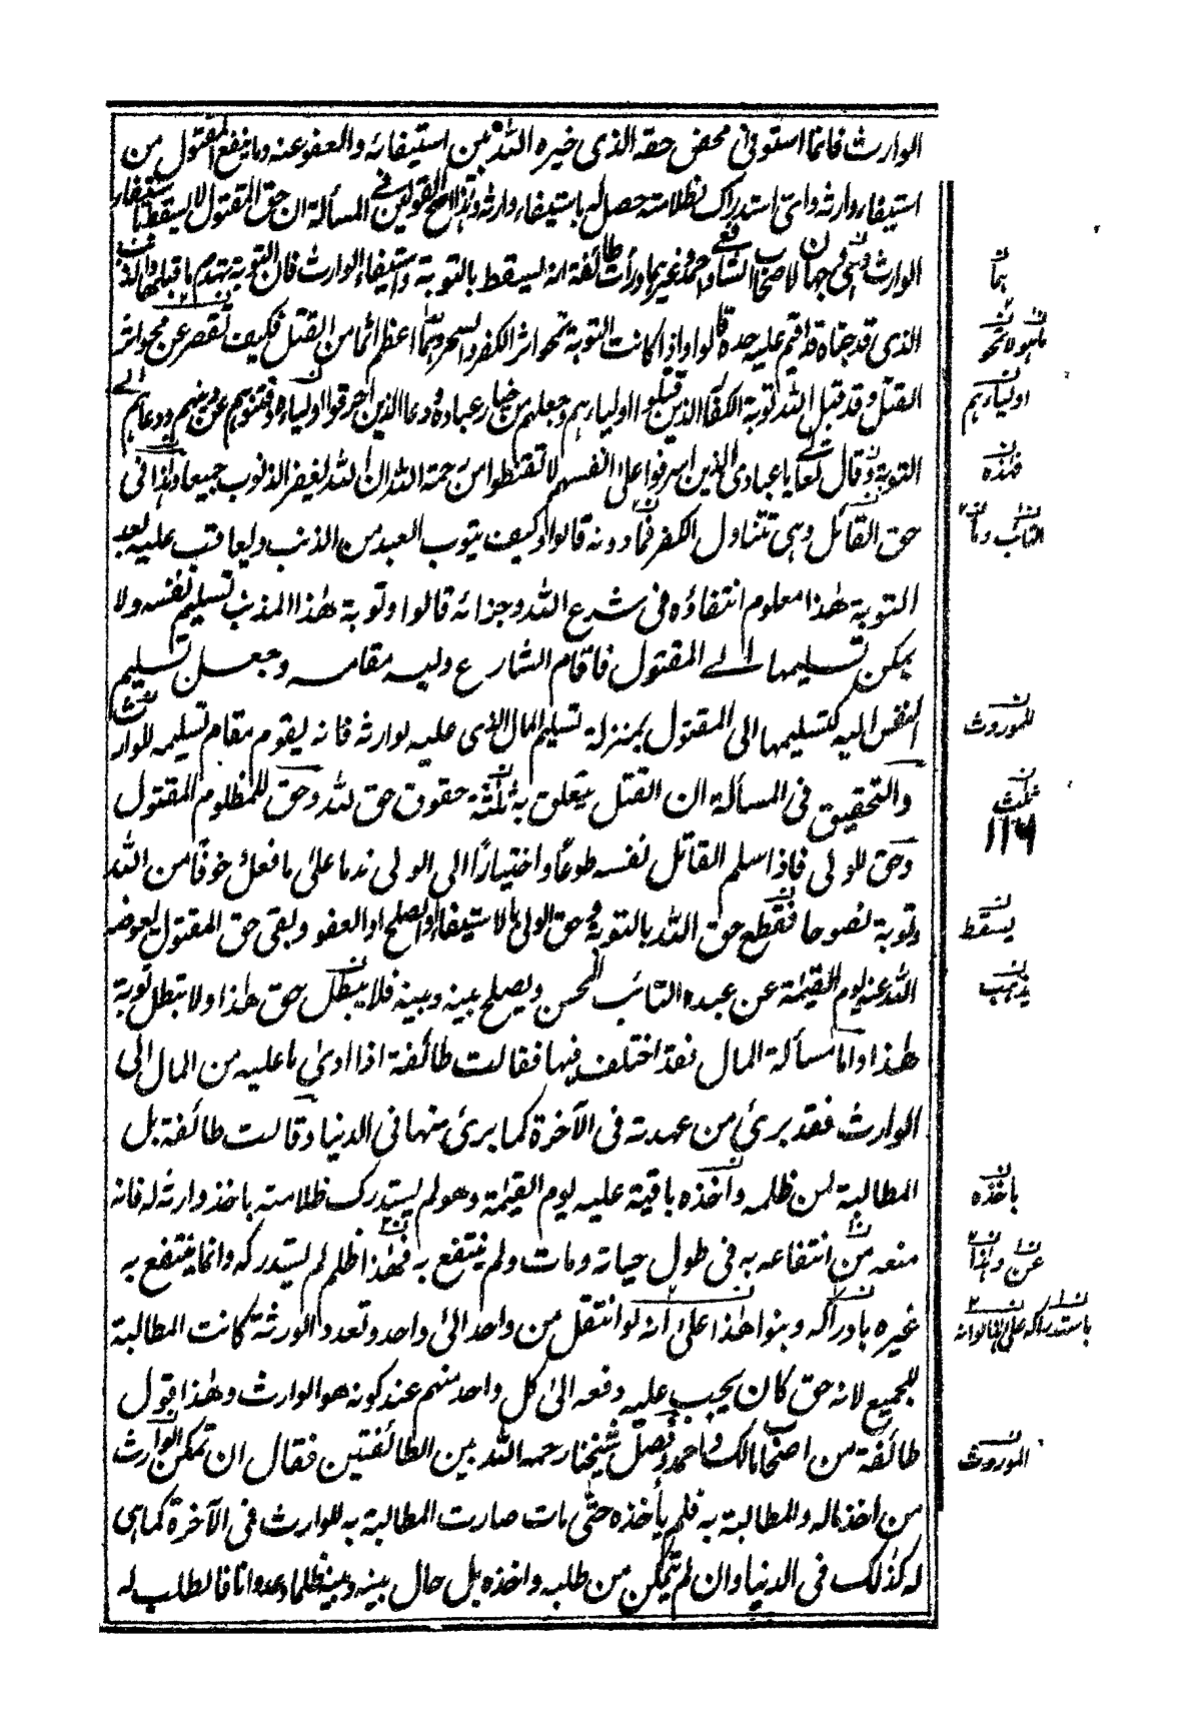 الوارث فانما استوفى محض حقه الذى خيره الله بين استيفائه والعفو عنه وما ينفع المقتول من
استيفاء وارثه واى استدراك لظلامته حصل له باستيفاء وارثه وهذا اصح القولين فى المسألة ان حق المقتول لا يسقط باستيفاء
الوارث وهى وجهان لاصحاب الشافعى واحمد وغيرهما ورأت طائفة انه يسقط بالتوبة واستيفاء الوارث فان التوبة تهدم ما قبلها والذنب
الذى قد جناه قد اقيم عليه حده قالوا واذا كانت التوبة تمحو اثر الكفر والسحر وهما اعظم اثما من القتل فكيف تقصر عن محو اثر
القتل وقد قبل الله توبة الكفار الذين قتلوا اولياءهم وجعلهم من خيار عباده ودعا الذين احرقوا اولياءه وفتنوهم عن دينهم ودعاهم الى
التوبة وقال تعالى يا عبادى الذين اسرفوا على انفسهم لا تقنطوا من رحمة الله ان الله يغفر الذنوب جميعا وهذا فى
حق القاتل وهى تتناول الكفر فما دونه قالوا وكيف يتوب العبد من الذنب ويعاقب عليه بعد
التوبة هذا معلوم انتفاؤه فى شرع الله وجزائه قالوا وتوبة هذا المذنب تسليم نفسه ولا
يمكن تسليمها الى المقتول فاقام الشارع وليه مقامه وجعل تسليم
النفس اليه كتسليمها الى المقتول بمنزلة تسليم المال الذى عليه لوارثه فانه يقوم مقام تسليمه للوارث
والتحقيق فى المسألة ان القتل يتعلق به ثلثة حقوق حق لله وحق للمظلوم المقتول
وحق للولى فاذا اسلم القاتل نفسه طوعا واختيارا الى الولى ندما على ما فعل خوفا من الله
وتوبة نصوحا فقطع حق الله بالتوبة وحق الولى بالاستيفاء او الصلح او العفو وبقى حق المقتول يعوضه
الله عنه يوم القيمة عن عبده التائب المحسن ويصلح بينه وبينه فلا يبطل حق هذا ولا تبطل توبة
هذا واما مسألة المال فقد اختلف فيها فقالت طائفة اذا ادى ما عليه من المال الى
الوارث فقد برئ من عهدته فى الآخرة كما برئ منها فى الدنيا وقالت طائفة بل
المطالبة لمن ظلمه واخذه باقية عليه يوم القيمة وهو لم يستدرك ظلامته باخذ وارثه له فانه
منعه من انتفاعه به فى طول حياته ومات ولم ينتفع به فهذا ظلم لم يستدركه وانما ينتفع به
غيره بادراكه وبنوا هذا على انه لو انتقل من واحد الى واحد وتعدد الورثة كانت المطالبة
للجميع لانه حق كان يجب عليه دفعه الى كل واحد منهم عند كونه هو الوارث وهذا قول
طائفة من اصحاب مالك واحمد وفصل شيخنا رحمه الله بين الطائفتين فقال ان تمكن الوارث
من اخذ ماله والمطالبة به فلم يأخذه حتى مات صارت المطالبة به للوارث فى الآخرة كما هى
له كذلك فى الدنيا وان لم يتمكن من طلبه واخذه بل حال بينه وبينه ظلما وعدوانا فالطلب له
اولياءهم
فهذه
للموروث
ثلث
١١٦
يسقط
يذهب
باخذه
الموروث